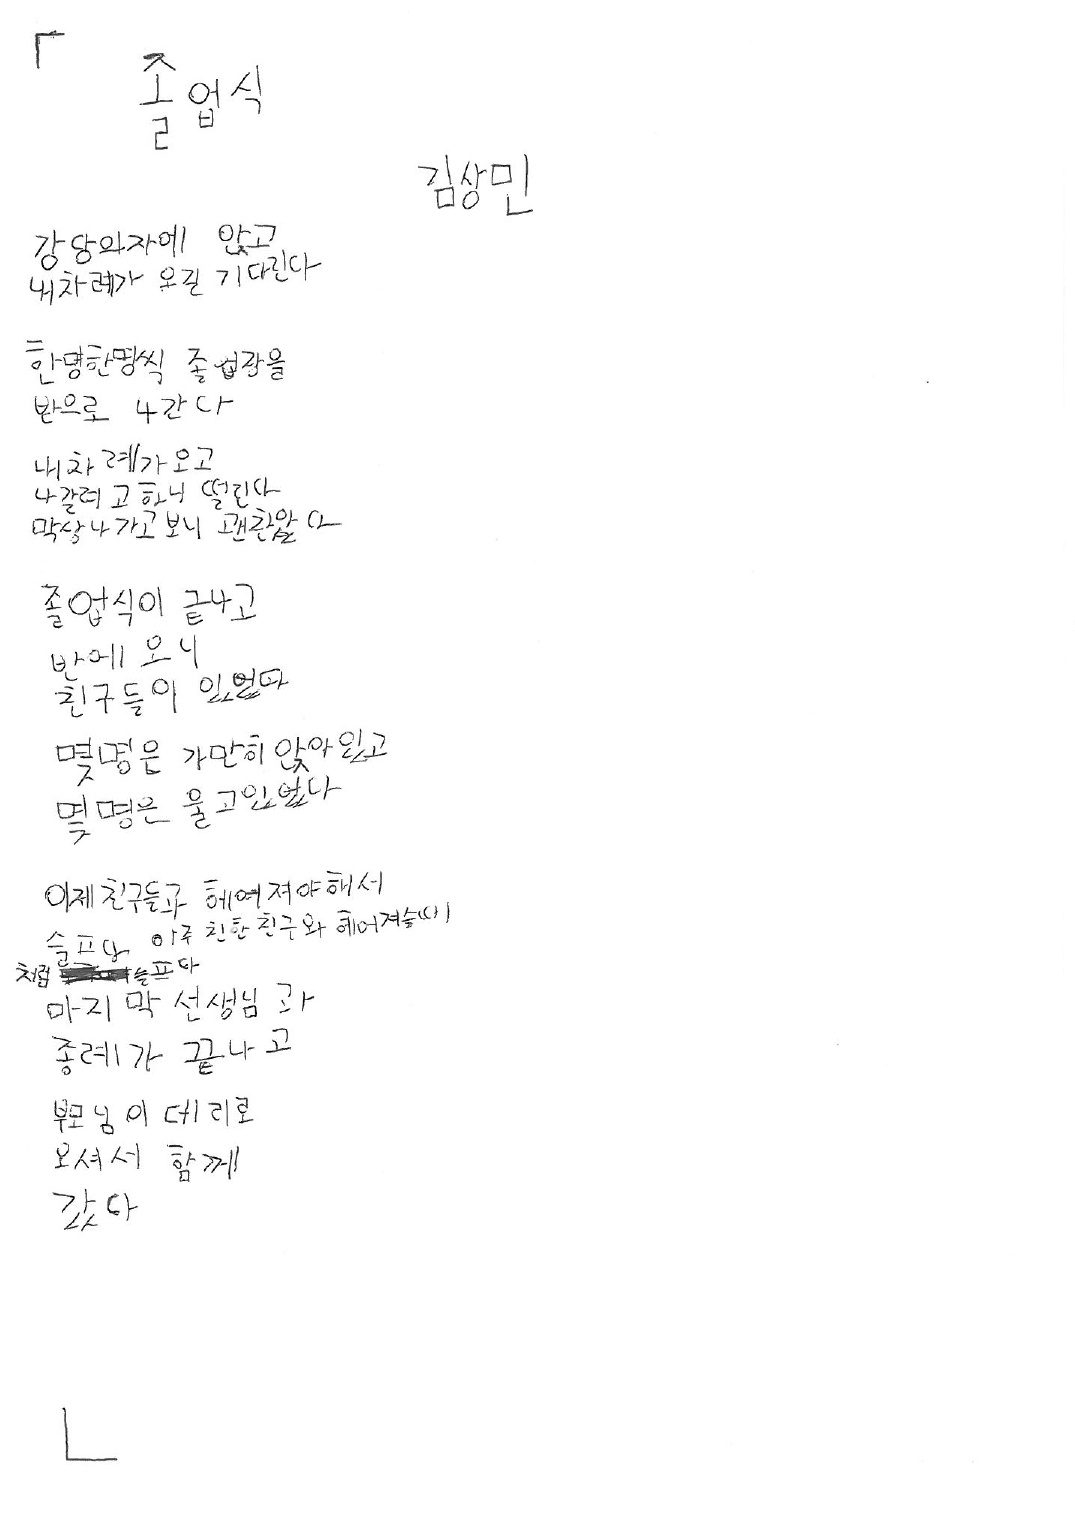 졸업식
김상민
강당의자에 앉고
내차례가 오길 기다린다
한명한명씩 졸업장을
받으로 나간다
내차례가오고
나갈려고 하니 떨린다
막상나가고보니 괜찮앟다
졸업식이 끝나고
반에 오니
친구들이 있었다
몇명은 가만히 앉아있고
몇명은 울고있었다
이제친구들과 헤여져야해서
슬프다 아주 친한친구와 헤어져슬때
처럼 슬프다
마지막 선생님과
종례가 끝나고
부모님이 데리로
오셔서 함께
갔다